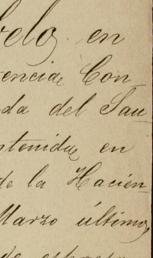 velo, en
encia, Con
da del Sau
ntenida en
de la Hacien
Marzo último,